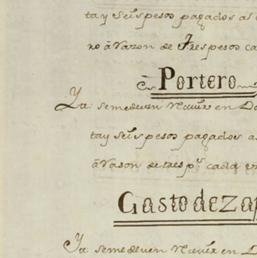 ta y seis pesos pagados al
no à razon de tres pesos ca
Portero
Ya se me deven Naur en Do
ta y seis pesos pagados a
à razon de tres ps. cada
Gasto de Zap
Ya se me deven en D